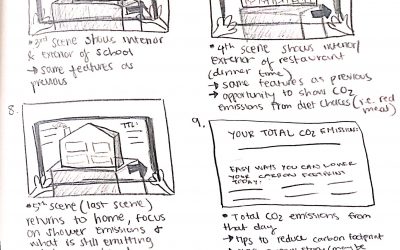 • 3rd scene shows interior
& exterior of school
→ same features as
previous
• 4th scene shows interior/
exterior of restaurant
(dinner time)
→ same features as previous
→ opportunity to show CO2
emissions from diet choices (i.e. red
meat)
8.
• 5th scene (last scene)
returns to home, focus
on shower emissions &
what is still emitting
9.
YOUR TOTAL CO2 EMISSIONS:
EASY WAYS YOU CAN LOWER
YOUR CARBON FOOTPRINT
TODAY:
• Total CO2 emissions from
that day
→ tips to reduce carbon footprint